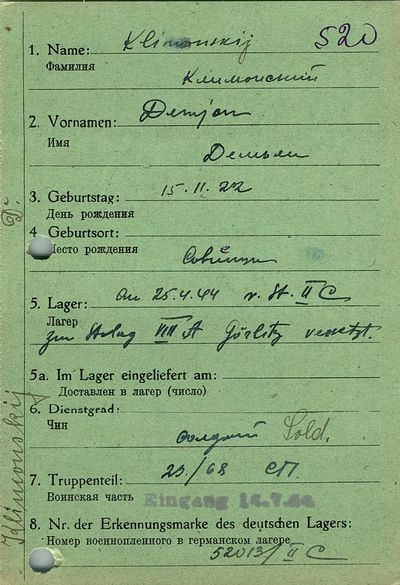 520
1. Name: Klimonskij
Фамилия
Климонский
2. Vornamen: Demjan
Имя
Демьян
3. Geburtstag: 15.11.22
День рождения
4. Geburtsort:
Место рождения
5. Lager: am 25.4.44 v. St. II C
Лагер
zu Stalag VIII A Görlitz versetzt.
5a. Im Lager eingeliefert am:
Доставлен в лагер (число)
6. Dienstgrad:
Чин
Sold.
7. Truppenteil: 23./68 СП.
Воинская часть
Eingang 14.7.44
8. Nr. der Erkennungsmarke des deutschen Lagers:
Номер военнопленного в германском лагере
52013/II C
D.
Klimonskij